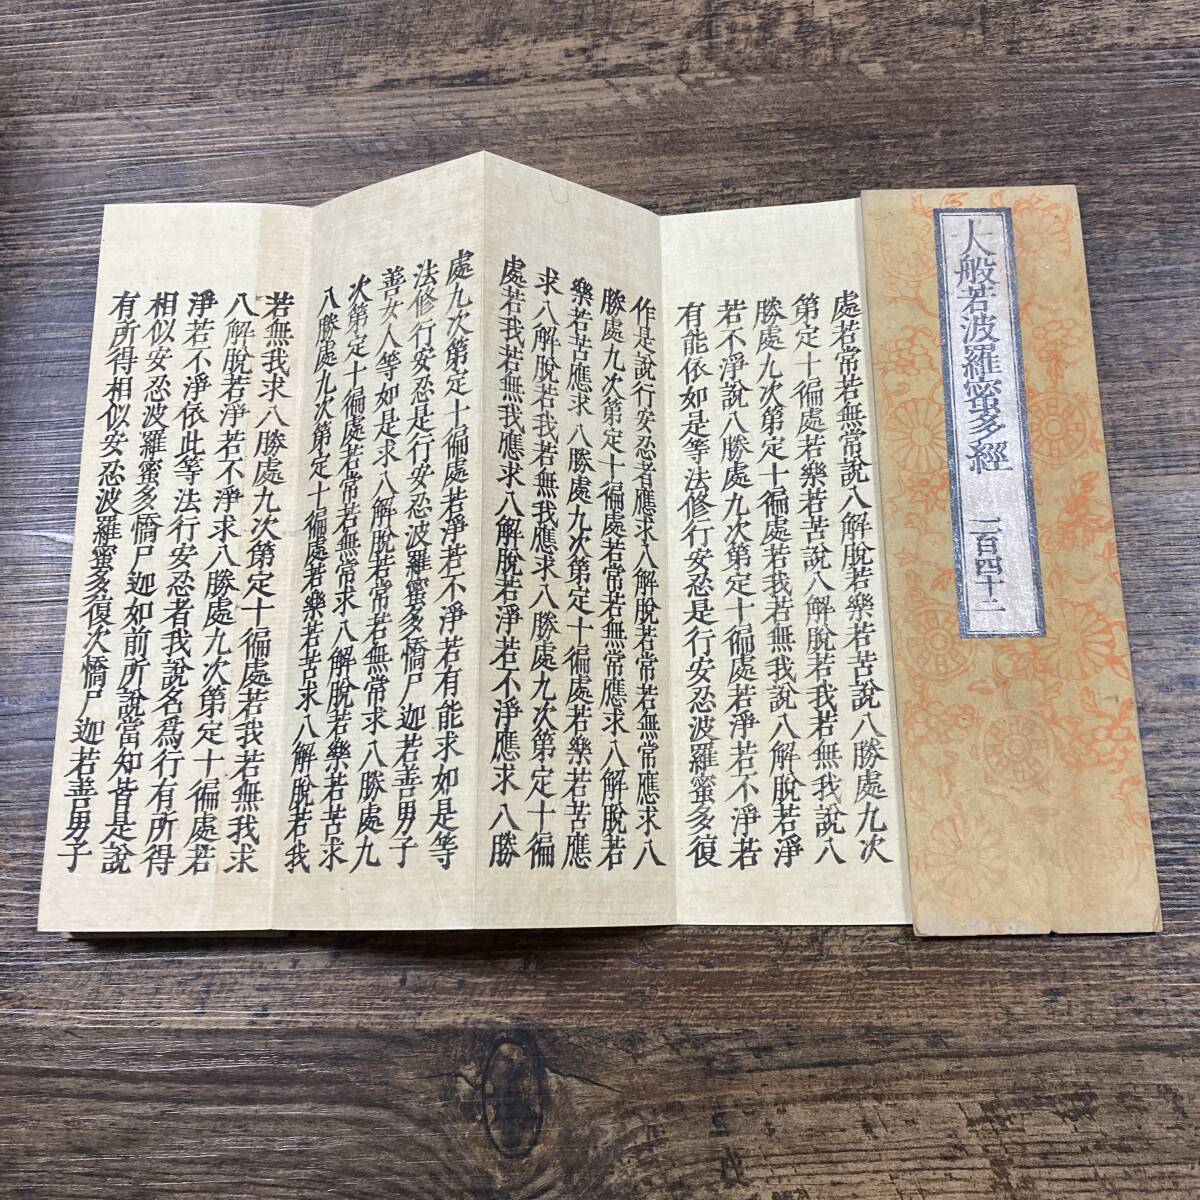 大般若波羅蜜多經 一百四十二
處若常若無常說八解脫若樂若苦說八勝處九次
第定十徧處若樂若苦說八解脫若我若無我說八
勝處九次第定十徧處若我若無我說八解脫若淨
若不淨說八勝處九次第定十徧處若淨若不淨若
有能依如是等法修行安忍是行安忍波羅蜜多復
作是說行安忍者應求八解脫若常若無常應求八
勝處九次第定十徧處若常若無常應求八解脫若
樂若苦應求八勝處九次第定十徧處若樂若苦應
求八解脫若我若無我應求八勝處九次第定十徧
處若我若無我應求八解脫若淨若不淨應求八勝
處九次第定十徧處若淨若不淨若有能求如是等
法修行安忍是行安忍波羅蜜多憍尸迦若善男子
善女人等如是求八解脫若常若無常求八勝處九
次第定十徧處若常若無常求八解脫若樂若苦求
八勝處九次第定十徧處若樂若苦求八解脫若我
若無我求八勝處九次第定十徧處若我若無我求
八解脫若淨若不淨求八勝處九次第定十徧處若
淨若不淨依此等法行安忍者我說名爲行有所得
相似安忍波羅蜜多憍尸迦如前所說當知皆是說
有所得相似安忍波羅蜜多復次憍尸迦若善男子